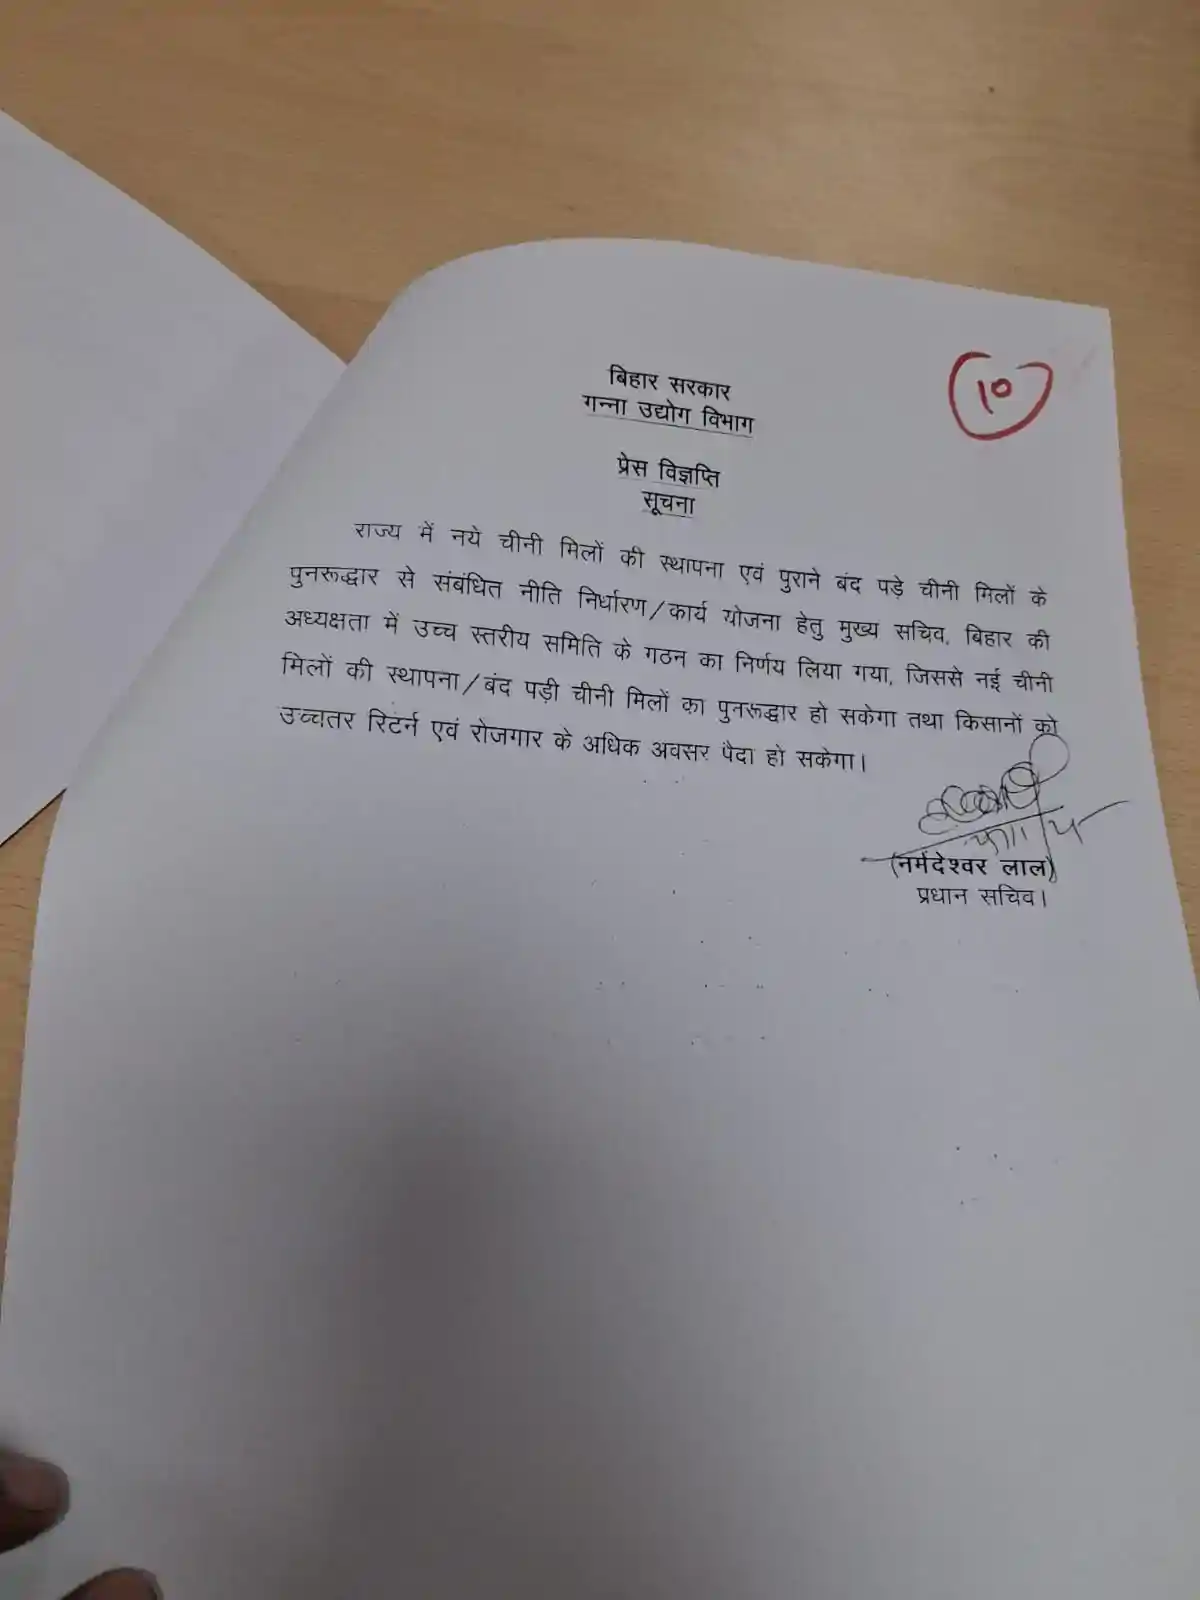 बिहार सरकार
गन्ना उद्योग विभाग
१०
प्रेस विज्ञप्ति
सूचना
राज्य में नये चीनी मिलों की स्थापना एवं पुराने बंद पड़े चीनी मिलों के
पुनरूद्धार से संबंधित नीति निर्धारण/कार्य योजना हेतु मुख्य सचिव, बिहार की
अध्यक्षता में उच्च स्तरीय समिति के गठन का निर्णय लिया गया, जिससे नई चीनी
मिलों की स्थापना/बंद पड़ी चीनी मिलों का पुनरूद्धार हो सकेगा तथा किसानों को
उच्चतर रिटर्न एवं रोजगार के अधिक अवसर पैदा हो सकेगा।
(नर्मदेश्वर लाल)
प्रधान सचिव।